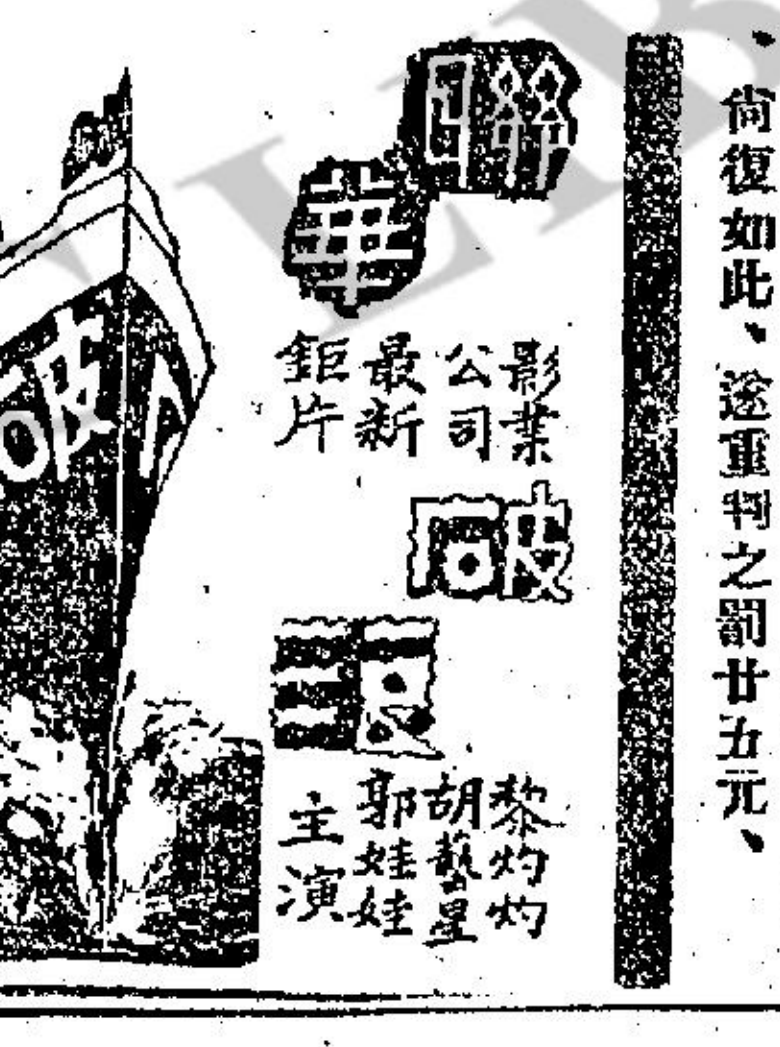 、尙復如此、遂重判之罰廿五元、
聯華
影業
公司
最新
鉅片
破浪
黎灼灼
胡藝星
郭娃娃
主演
破